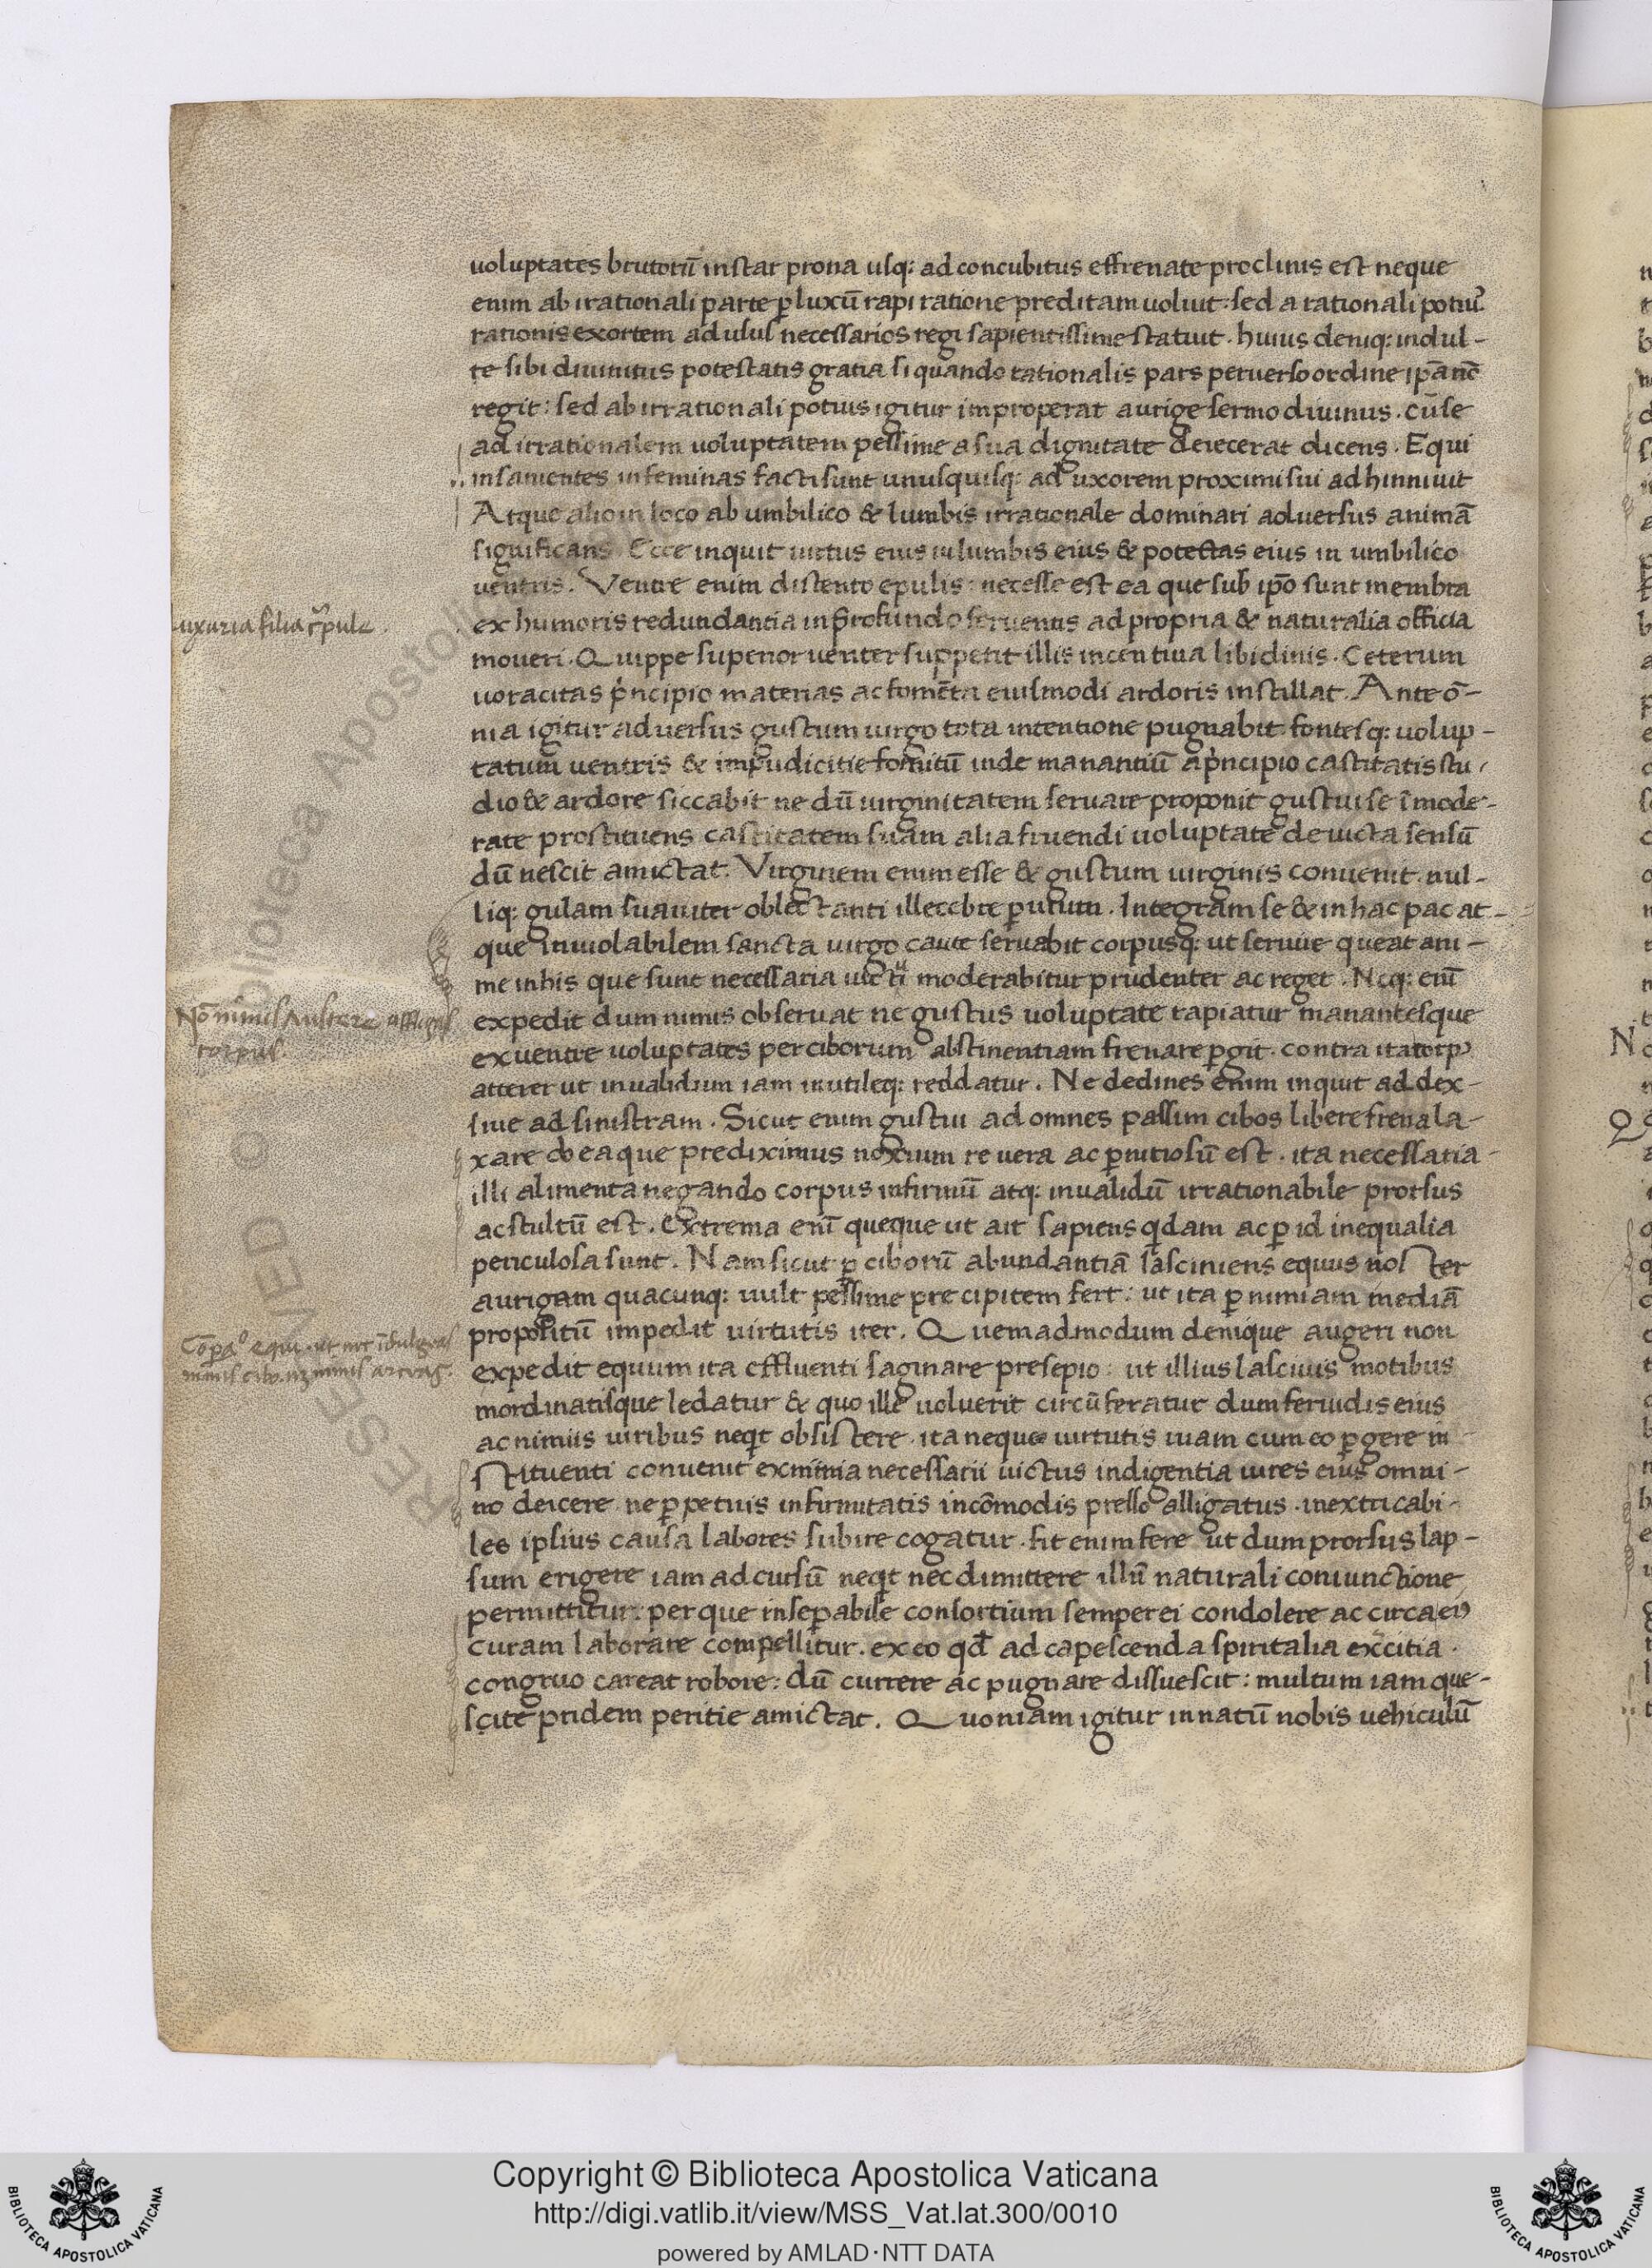 uoluptates brutorū instar prona usq: ad concubitus effrenate proclinis est neque
enim ab irationali parte p luxū rapi ratione preditam uoluit: sed a rationali potiu
rationis exortem ad usus necessarios regi sapientissime statuit. huius deniq: indul-
te sibi diuinitus potestatis gratia si quando rationalis pars peruerso ordine ipā nō
regit: sed ab irrationali potius igitur improperat aurige sermo diuinus. cū se
ad irrationalem uoluptatem pessime a sua dignitate deiecerat dicens. Equi
insanientes in feminas facti sunt unusquisq: ad uxorem proximi sui adhinniuit
Atque alio in loco ab umbilico & lumbis irrationale dominari aduersus animā
significans Ecce inquit uirtus eius in lumbis eius & potestas eius in umbilico
uentris. Ventre enim distento epulis: necesse est ea que sub ipō sunt membra
luxuria filia cr̄pule.
ex humoris redundantia in profundo feruentis ad propria & naturalia officia
moueri. Quippe superior uenter suppetit illis incentiua libidinis. Ceterum
uoracitas pncipio materias ac fomēta eiusmodi ardoris instillat. Ante ō-
nia igitur aduersus gustum uirgo tota intentione pugnabit fontesq: uolup-
tatum uentris & impudicitie fomitū inde manantiū a pncipio castitatis stu-
dio & ardore siccabit ne dū uirginitatem seruare proponit gustui se īmode-
rate prostituens castitatem suam alia fruendi uoluptate deuicta sensū
dū nescit amictat. Virginem enim esse & gustum uirginis conuenit. nul-
liq: gulam suauiter oblectanti illecebre peruium. Integram se & in hac pac at-
que inuiolabilem sancta uirgo caute seruabit corpusq: ut seruire queat ani-
me in his que sunt necessaria uictui moderabitur prudenter ac reget. Neq: enī
Nō nimis austere affligas
corpus.
expedit dum nimis obseruat ne gustus uoluptate rapiatur manantesque
ex uentre uoluptates per ciborum abstinentiam frenare pgit. contra ita corp9
atterer ut inualidum iam inutileq: reddatur. Ne declines enim inquit ad dex-
siue ad sinistram. Sicut enim gustui ad omnes passim cibos libere frena la-
xare ob ea que prediximus noxium re uera ac pnitiosū est. ita necessaria
illi alimenta negando corpus infirmū atq: inualidū irrationabile prorsus
ac stultū est. Extrema enī queque ut ait sapiens qdam ac p id inequalia
periculosa sunt. Nam sicut p ciborū abundantiā lasciuiens equus noster
aurigam quacunq: uult pessime precipitem fert: ut ita p nimiam mediā
Cōpaō equi ut nec īdulgeas
nimis cibo. nz nimis arceas.
propositū impedit uirtutis iter. Quemadmodum denique augeri non
expedit equum ita effluenti saginare presepio: ut illius lasciuis motibus
inordinatisque ledatur & quo ille uoluerit circūferatur dum feruidis eius
ac nimiis uiribus neqt obsistere. ita neque uirtutis uiam cum eo pgere in
stituenti conuenit ex nimia necessarii uictus indigentia uires eius omni-
no deicere ne ppetuis infirmitatis incōmodis presso alligatus. inextricabi-
les ipsius causa labores subire cogatur. fit enim fere ut dum prorsus lap-
sum erigere iam ad cursū neqt nec dimittere illū naturali coniunctione
permittitur: per que insepabile consortium semper ei condolere ac circa ei9
curam laborare compellitur. ex eo qd ad capescenda spiritalia excitia.
congruo careat robore: dū currere ac pugnare dissuescit: multum iam que-
scite pridem peritie amictat. Quoniam igitur innatū nobis uehiculū
Copyright © Biblioteca Apostolica Vaticana
http://digi.vatlib.it/view/MSS_Vat.lat.300/0010
powered by AMLAD·NTT DATA
BIBLIOTECA APOSTOLICA VATICANA
BIBLIOTECA APOSTOLICA VATICANA